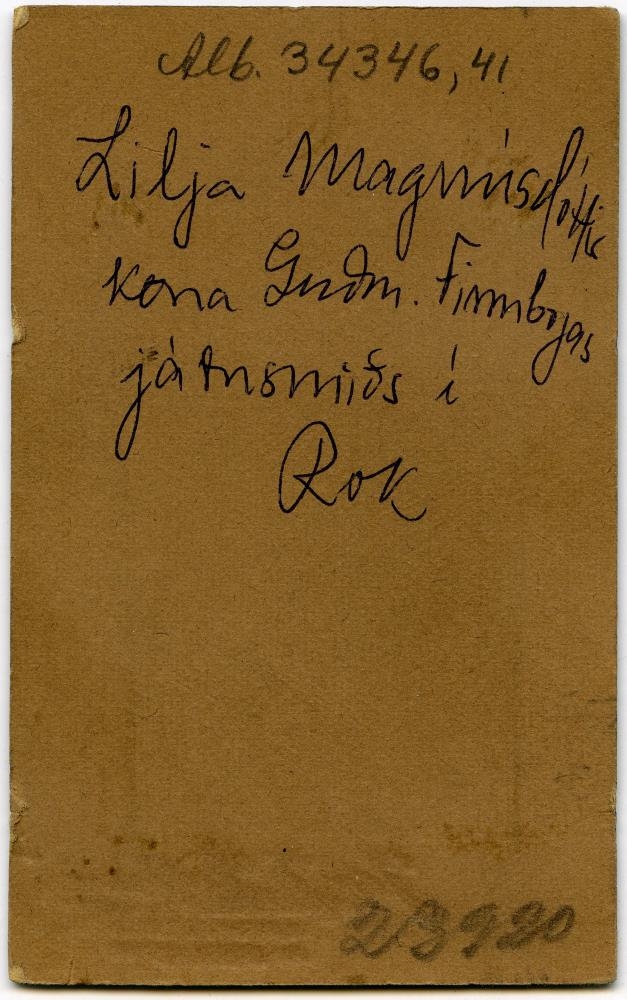 Alb. 34346, 41
Lilja Magnúsdóttir
kona Guðm. Finnbogas
járnsmiðs í
Rvk
23920